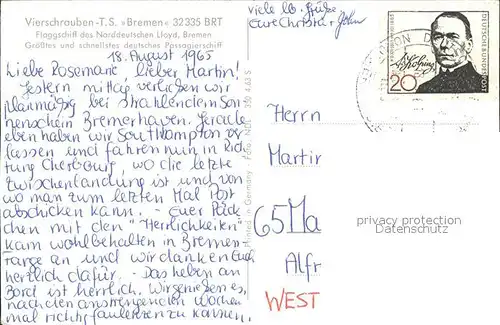 Vierschrauben-T.S. »Bremen« 32335 BRT
Flaggschiff des Norddeutschen Lloyd, Bremen
Größtes und schnellstes deutsches Passagierschiff
18. August 1965
Liebe Rosemarie, lieber Martin!
Gestern mittag verließen wir
planmäßig bei strahlendem Son
nenschein Bremerhaven. Gerade
eben haben wir Southampton ver
lassen und fahren nun in Rich
tung Cherbourg, wo die letzte
Zwischenlandung ist und von
wo man zum letzten Mal Post
abschicken kann. - Euer Päck
chen mit den "Herrlichkeiten"
kam wohlbehalten in Bremen-
Farge an und wir danken Euch
herzlich dafür. - Das Leben an
Bord ist herrlich. Wir genießen es,
nach den anstrengenden Wochen
mal richtig faulenzen zu können.
viele lb. Grüße
Eure Christa +
Printed in Germany - Foto: NDL
DEUTSCHE BUNDESPOST
20
Herrn
Martin
65 Ma
Alfr
WEST
privacy protection
Datenschutz